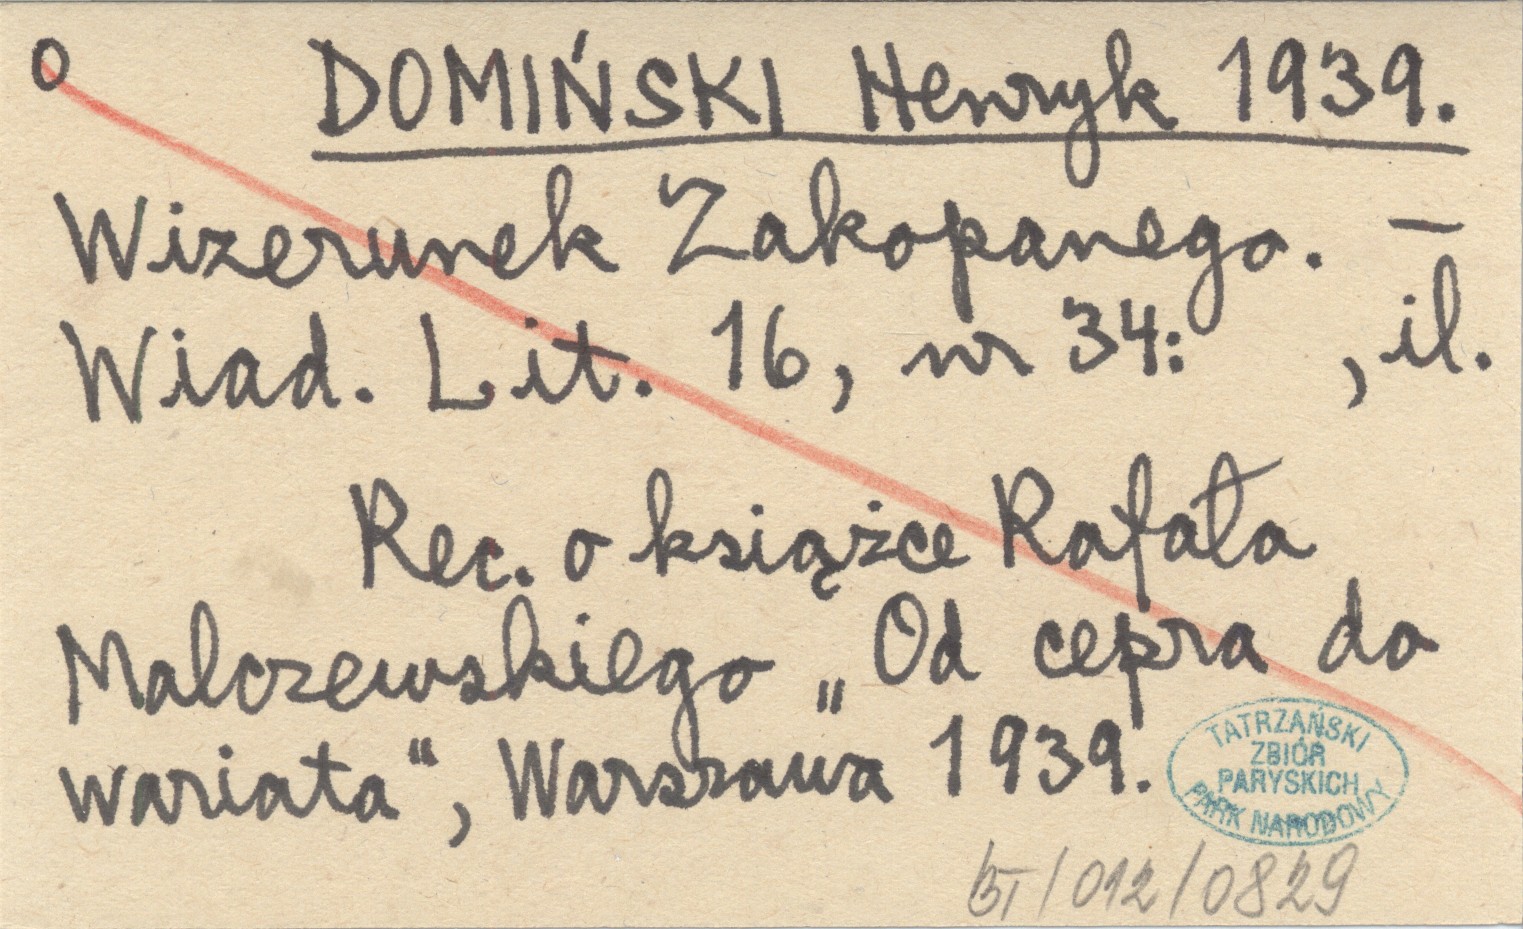 o DOMIŃSKI Henryk 1939.
Wizerunek Zakopanego. —
Wiad. Lit. 16, nr 34: , il.
Rec. o książce Rafała
Malczewskiego „Od cepra do
wariata“, Warszawa 1939.
TATRZAŃSKI
ZBIÓR
PARYSKICH
PARK NARODOWY
/012/0829